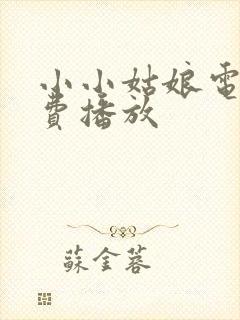 小小姑娘電
費播放
蘇金蓉